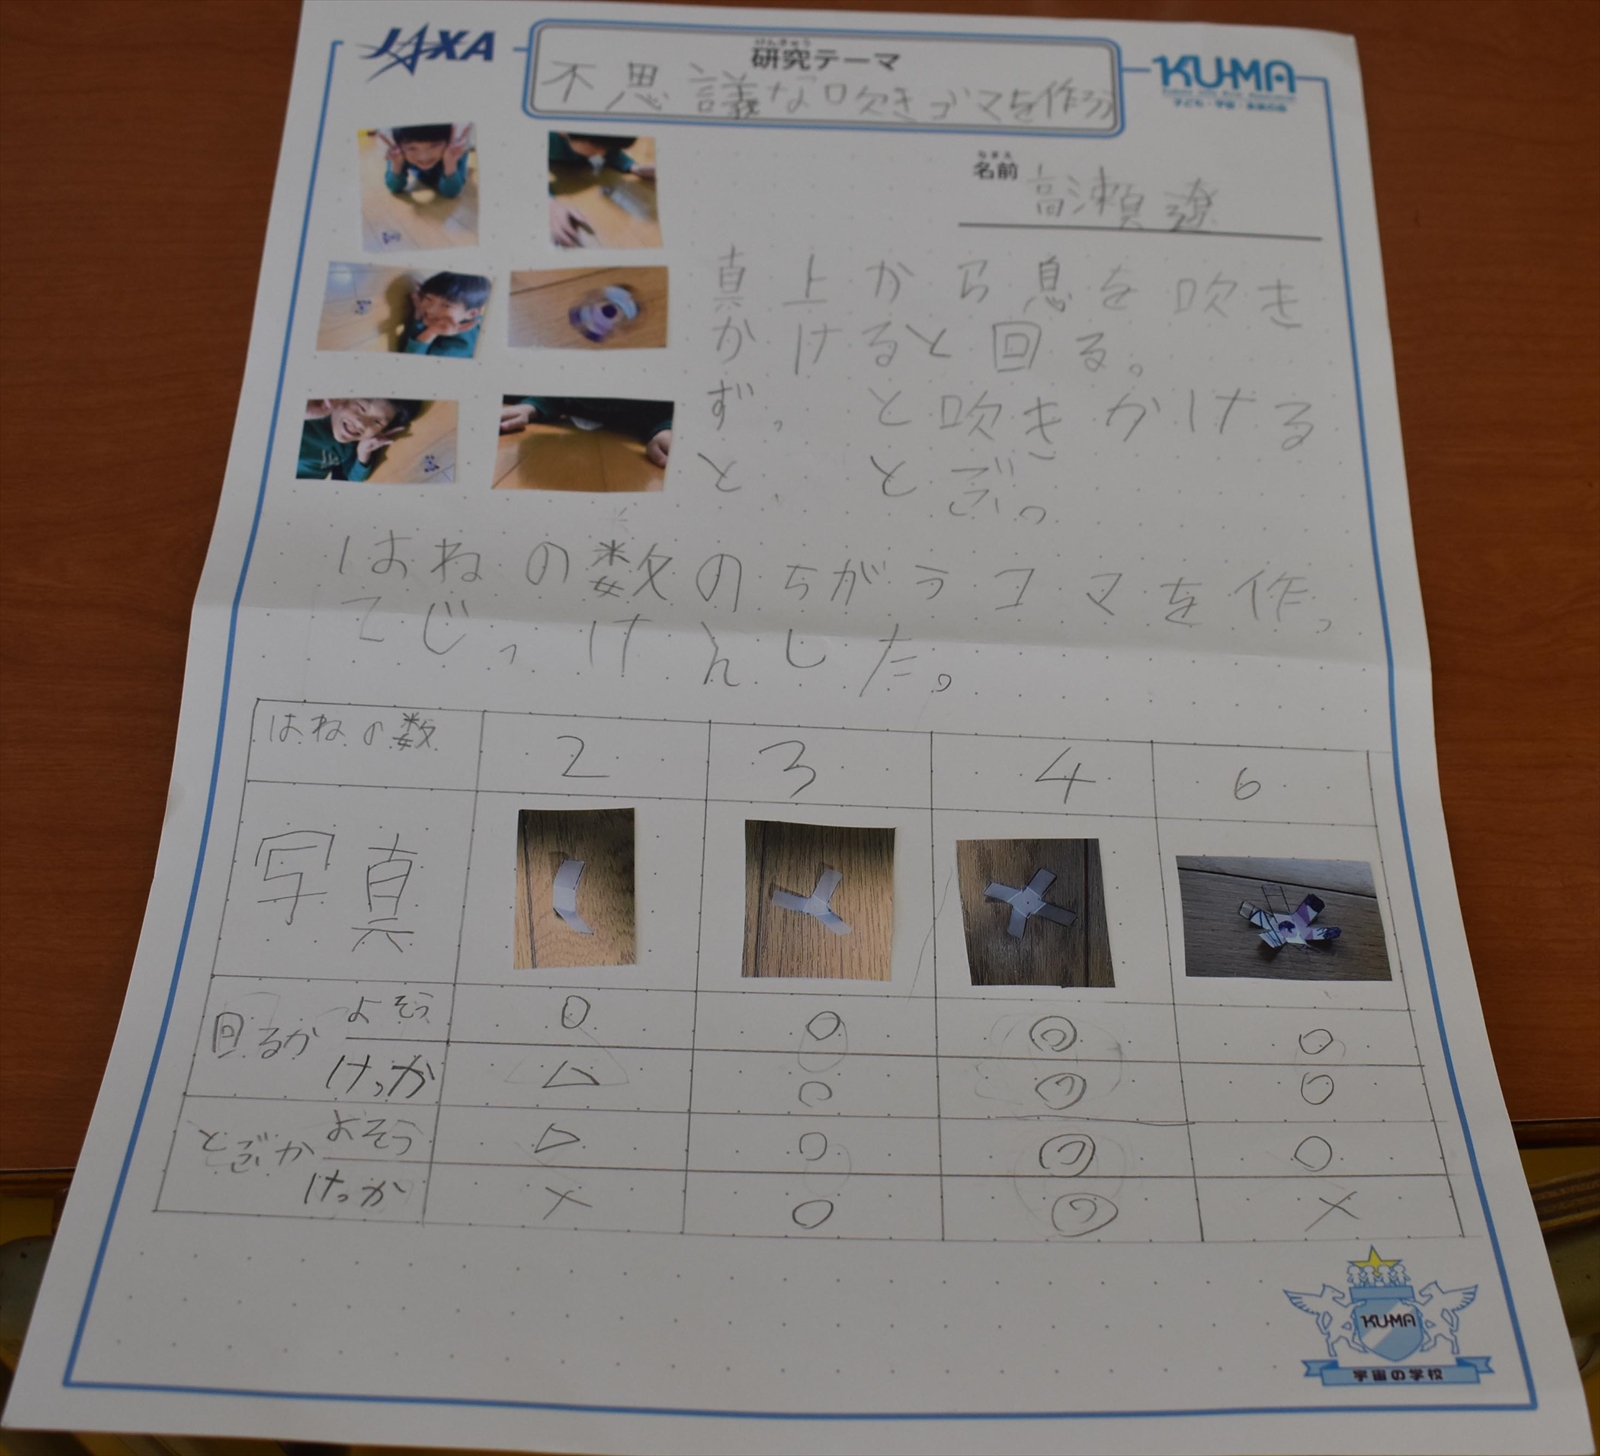 JAXA
けんきゅう
研究テーマ
不思議な吹きゴマを作ろう
KU-MA
子ども・宇宙・未来の会
なまえ
名前 高瀬 遼
真上から息を吹き
かけると回る。
ずっと吹きかける
と、とぶ。
はねの数のちがうコマを作っ
てじっけんした。
はねの数 2 3 4 6
写真
回るか よそう ○ ○ ◎ ○
けっか △ ○ ◎ ○
とぶか よそう △ ○ ◎ ○
けっか × ○ ◎ ×
KU-MA
宇宙の学校